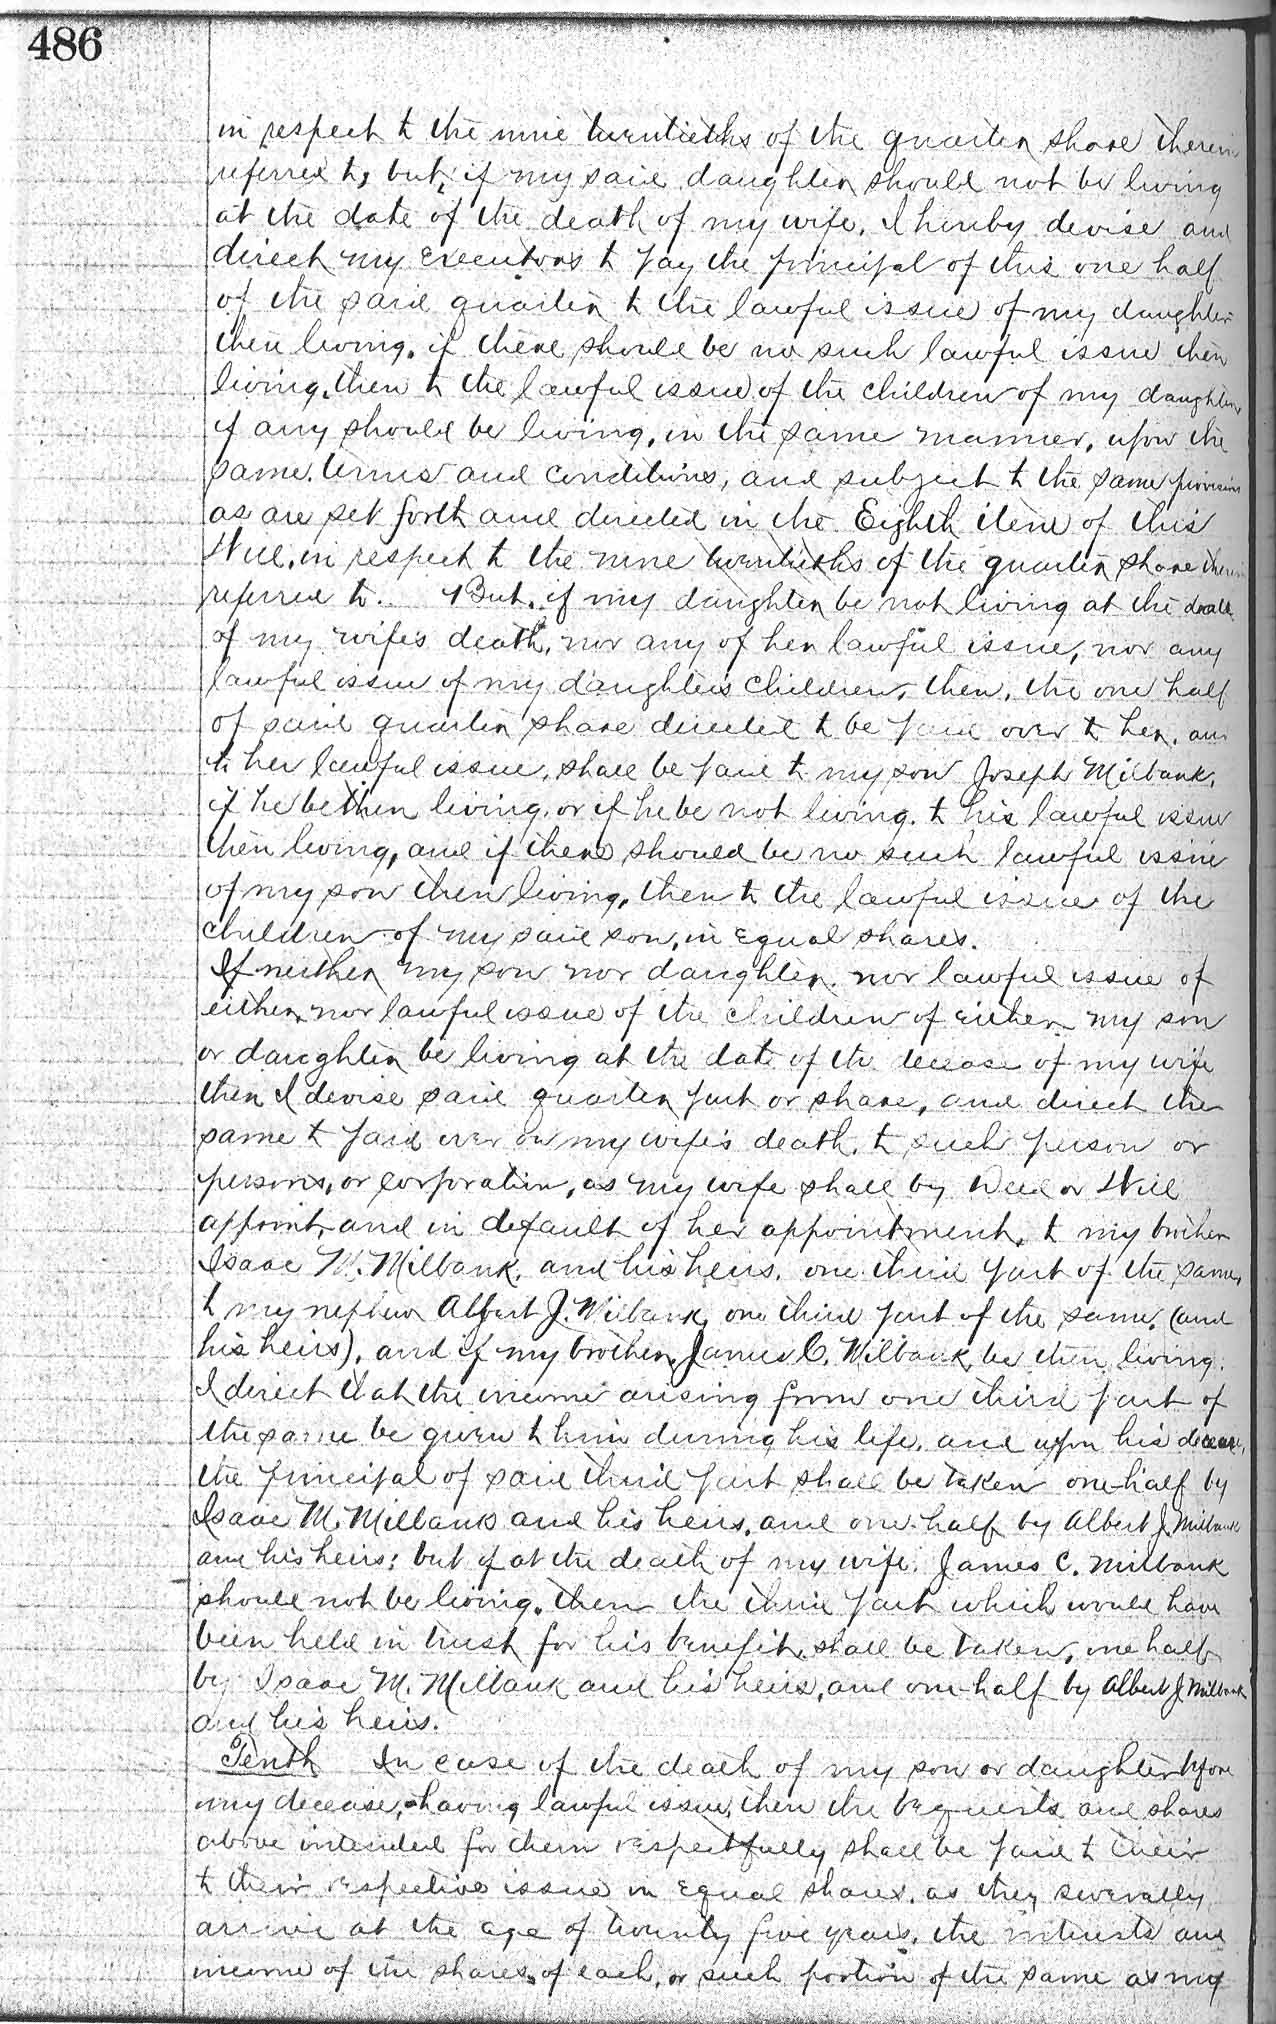 486
in respect to the nine twentieths of the quarter share therein
referred to, but, if my said daughter should not be living
at the date of the death of my wife, I hereby devise and
direct my Executors to pay the principal of this one half
of the said quarter to the lawful issue of my daughter
then living, if there should be no such lawful issue then
living, then to the lawful issue of the children of my daughter,
if any should be living, in the same manner, upon the
same terms and conditions, and subject to the same provisions
as are set forth and directed in the Eighth item of this
Will, in respect to the nine twentieths of the quarter share therein
referred to. But, if my daughter be not living at the date
of my wife's death, nor any of her lawful issue, nor any
lawful issue of my daughters children, then, the one half
of said quarter share directed to be paid over to her, and
to her lawful issue, shall be paid to my son Joseph Milbank,
if he be then living, or if he be not living, to his lawful issue
then living, and if there should be no such lawful issue
of my son then living, then to the lawful issue of the
children of my said son, in equal shares.
If neither my son nor daughter, nor lawful issue of
either, nor lawful issue of the children of either my son
or daughter be living at the date of the decease of my wife
then I devise said quarter part or share, and direct the
same to paid over on my wife's death, to such person or
persons, or corporation, as my wife shall by Deed or Will
appoint, and in default of her appointment, to my brother
Isaac M. Milbank, and his heirs, one third part of the same,
to my nephew Albert J. Milbank, one third part of the same, (and
his heirs), and if my brother, James C. Milbank, be then living,
I direct that the income arising from one third part of
the same be given to him during his life, and upon his decease,
the principal of said third part shall be taken one-half by
Isaac M. Milbank and his heirs, and one-half by Albert J. Milbank
and his heirs; but if at the death of my wife, James C. Milbank
should not be living, then the third part which would have
been held in trust for his benefit, shall be taken, one half
by Isaac M. Milbank and his heirs, and one-half by Albert J. Milbank
and his heirs.
Tenth In case of the death of my son or daughter before
my decease, having lawful issue, then the bequests and shares
above intended for them respectfully shall be paid to their
to their respective issue in equal shares, as they severally
arrive at the age of twenty five years, the interests and
income of the shares of each, or such portion of the same as my